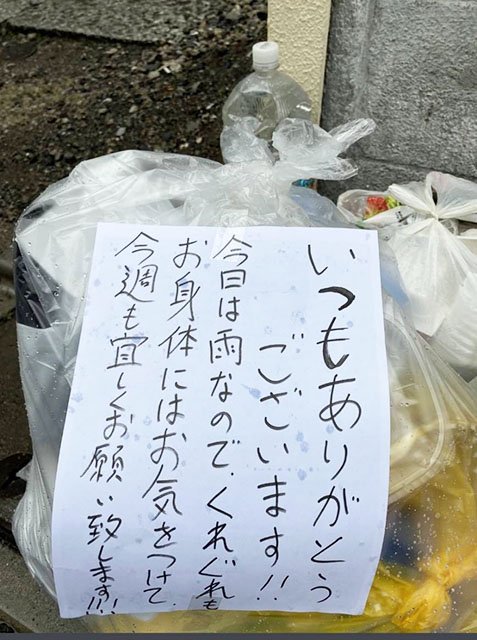 いつもありがとう
ございます!!
今日は雨なので、くれぐれも
お身体にはお気をつけて、
今週も宜しくお願い致します!!!